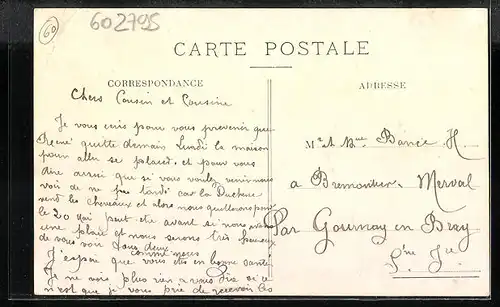 60
602795
CARTE POSTALE
CORRESPONDANCE
ADRESSE
Chers Cousin et Cousine
Je vous ecris pour vous prevenir que
quitte demain Lundi la maison
pour aller se placer et pour vous
dire aussi que si vous voulez venir nous
voir de ne pas tardé car la
vend les chevaux et alors nous quitterons pour
le 20 Mai peut etre avant si nous avons
une place et nous serons très heureux
de vous voir tous deux
J'espai que vous etes en bonne santé
comme nous
Je ne vois plus rien a vous dire si ce
n'est que je vous prie de recevoir les
Mr et Mme Bance H.
a Bremontier. Merval
Par Gournay en Bray
Sne Jre